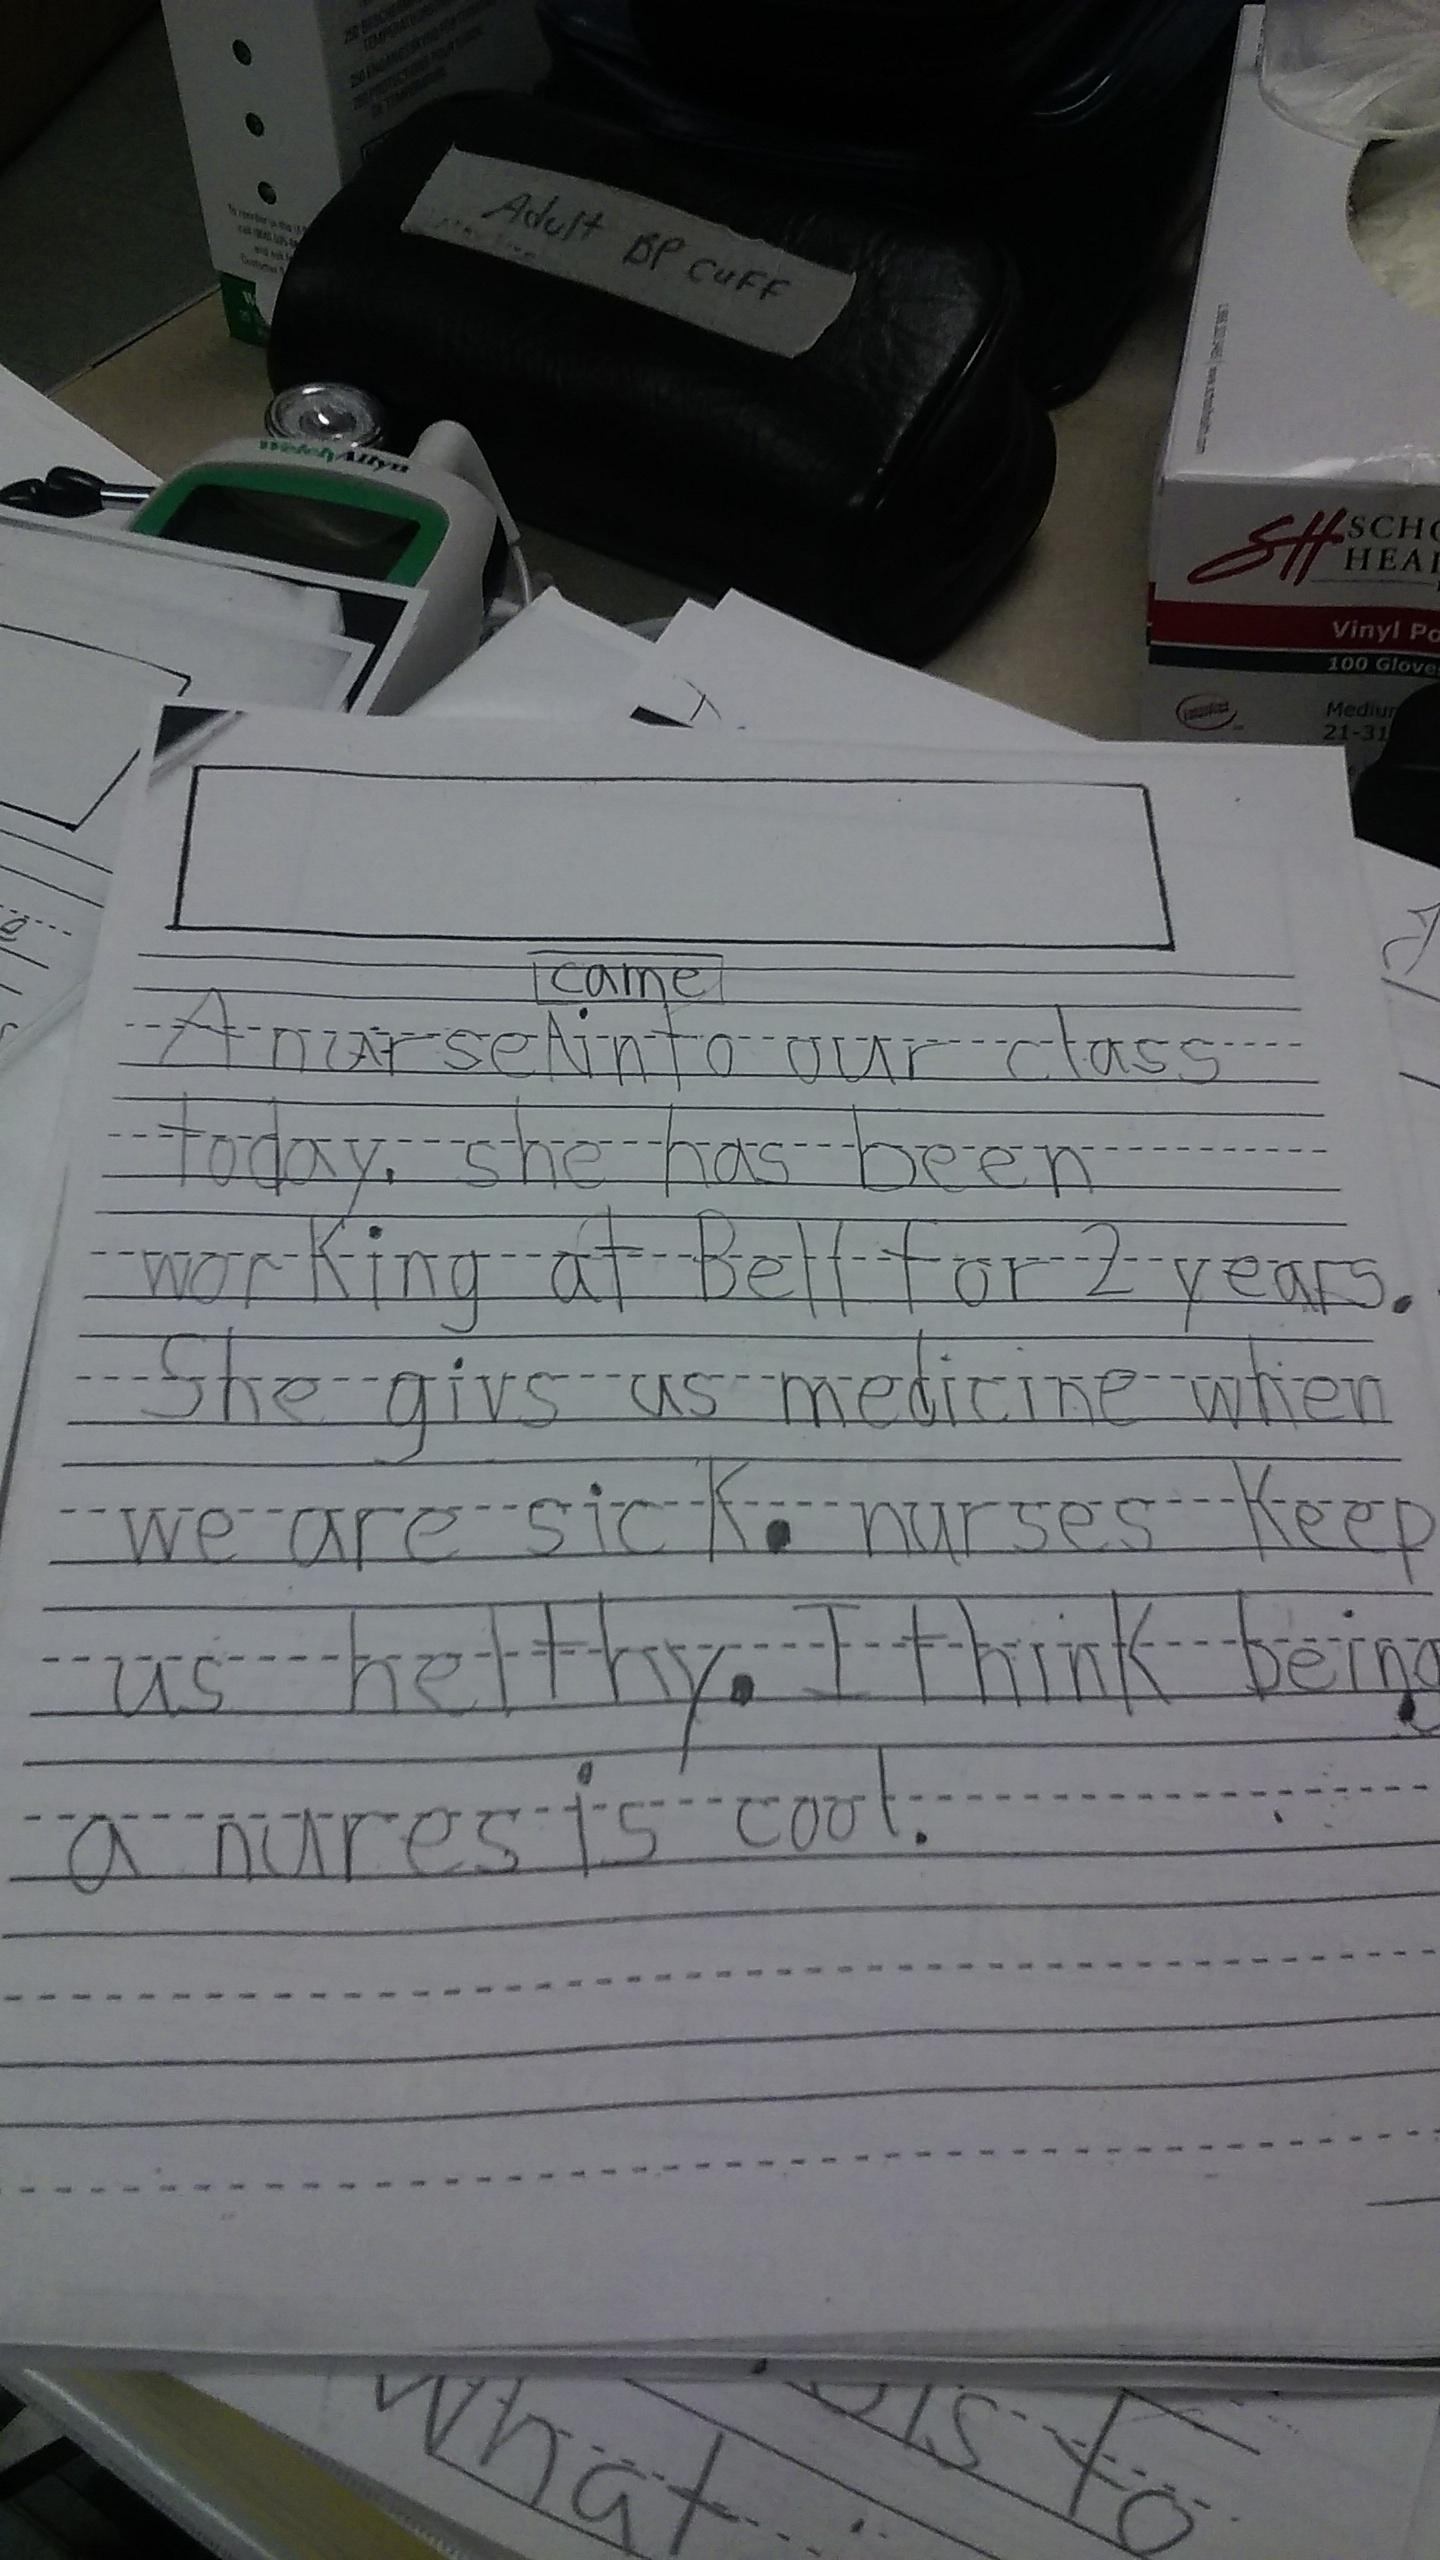 TEMPERATURE
Adult BP CUFF
WelchAllyn
SH
Vinyl
100
21-31
came
A nurse into our class
today. she has been
working at Bell for 2 years.
She givs us medicine when
we are sick. nurses Keep
us helthy. I think being
a nures is cool.
What
to